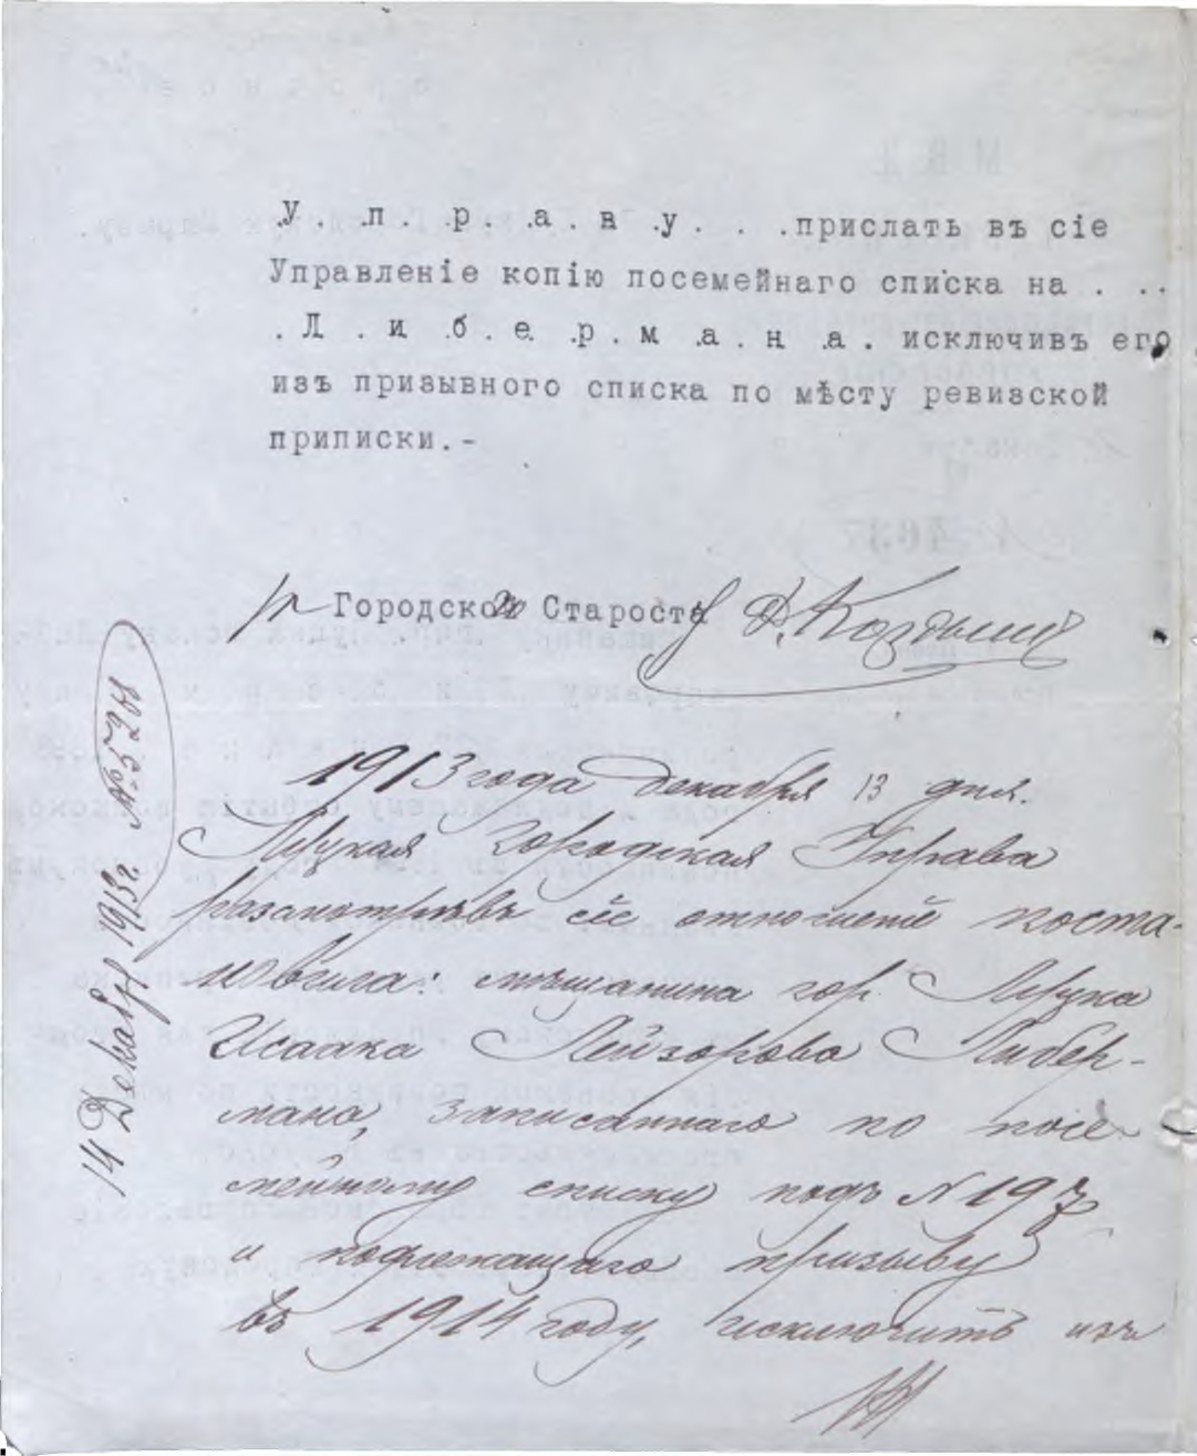 .У. .п. .р. .а. .в. .у. . . .прислать въ сіе
Управленіе копію посемейнаго списка на . . .
.Л. .и. .б. .е. .р. .м. .а. .н. .а. . исключивъ его
изъ призывного списка по мѣсту ревизской
приписки.-
Городской Староста
1913 года декабря 13 дня.
Луцкая Городская Управа
разсмотрѣвъ сіе отношеніе поста-
новила: мѣщанина гор. Луцка
Исаака Лейзорова Либер-
мана, записаннаго по посе-
мейному списку подъ № 197
и подлежащаго призыву
въ 1914 году, исключить изъ
14 Декабря 1913 г. №